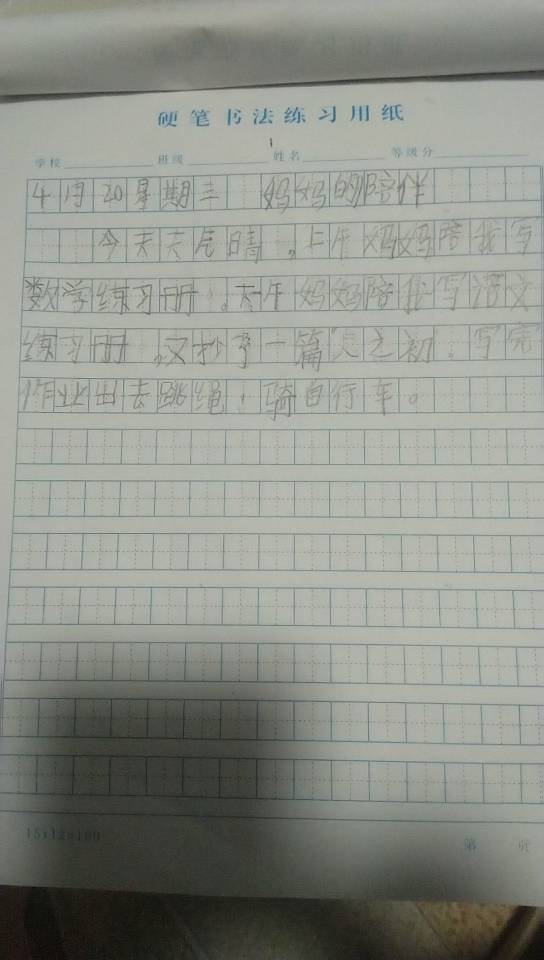 硬笔书法练习用纸
学校 班级 姓名 等级分
4月20星期三 妈妈的陪伴
今天天气晴。上午妈妈陪我写
数学练习册。下午妈妈陪我写语文
练习册。又抄写一篇人之初。写完
作业出去跳绳,骑自行车。
15x12=180
第 页